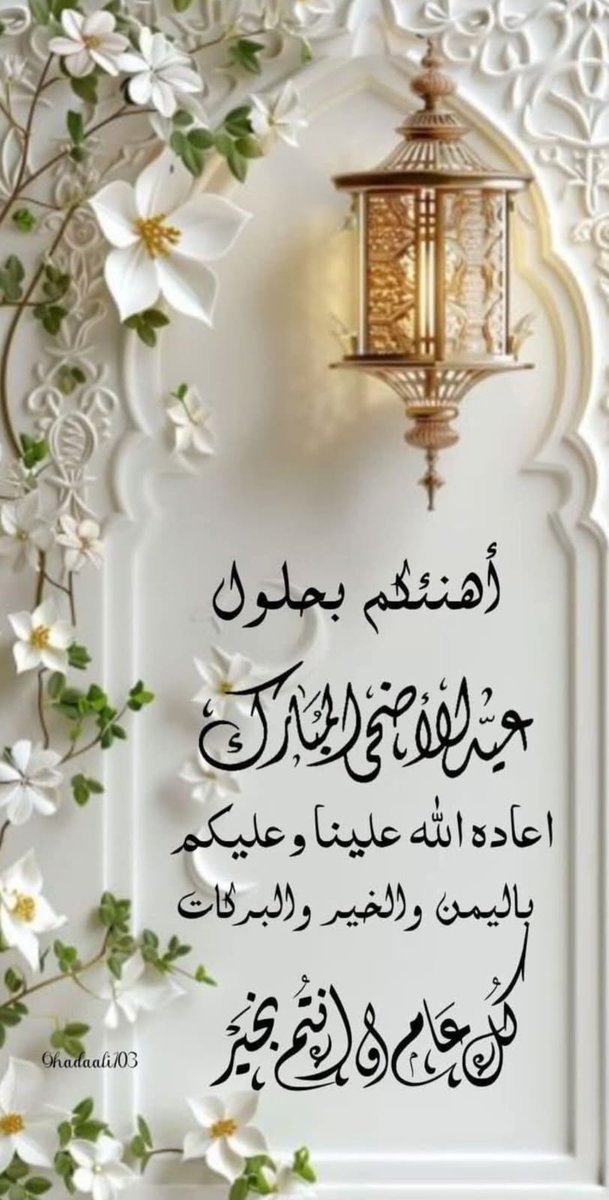 أهنئكم بحلول
عيد الأضحى المبارك
اعاده الله علينا وعليكم
باليمن والخير والبركات
كل عام وانتم بخير
Ghadaali103